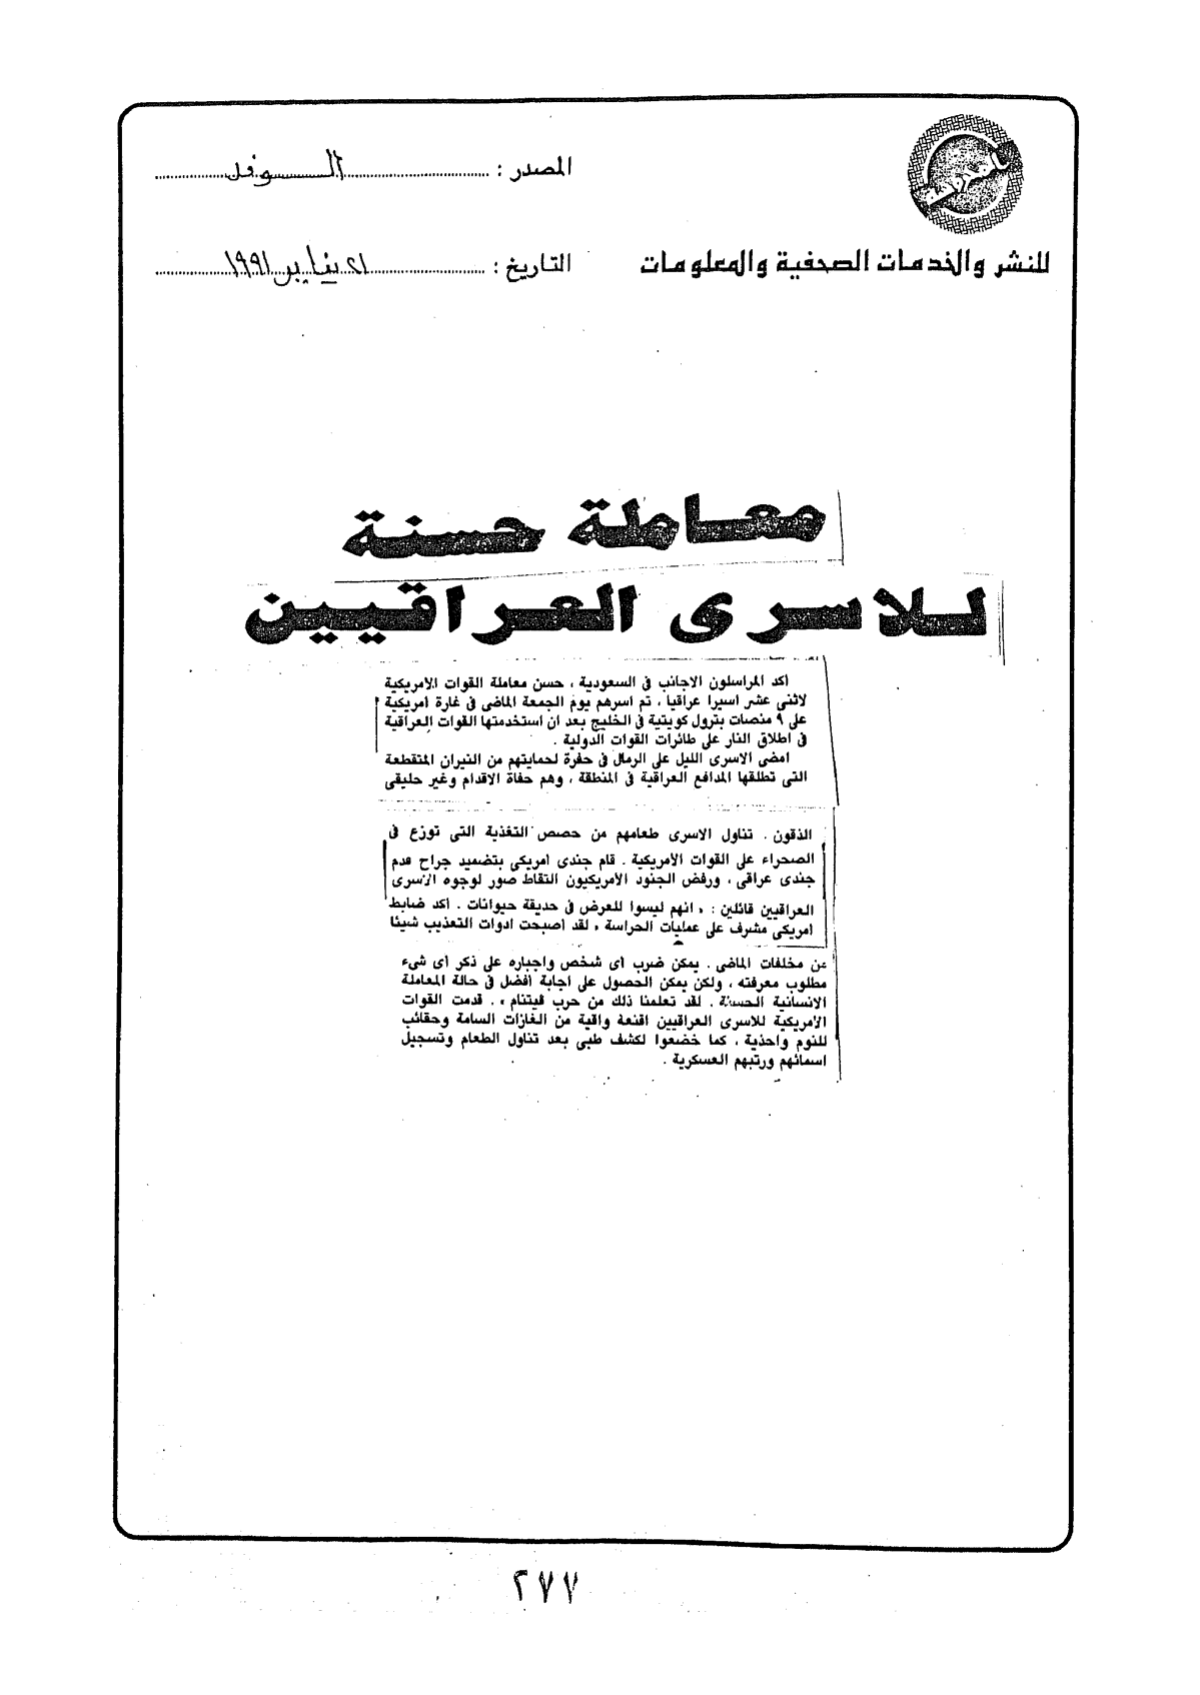 المصدر : الوفد
للنشر والخدمات الصحفية والمعلومات
التاريخ : ٢١ يناير ١٩٩١
معاملة حسنة
للاسرى العراقيين
اكد المراسلون الاجانب فى السعودية ، حسن معاملة القوات الامريكية
لاثنى عشر اسيرا عراقيا ، تم اسرهم يوم الجمعة الماضى فى غارة امريكية
على ٩ منصات بترول كويتية فى الخليج بعد ان استخدمتها القوات العراقية
فى اطلاق النار على طائرات القوات الدولية .
امضى الاسرى الليل على الرمال فى حفرة لحمايتهم من النيران المتقطعة
التى تطلقها المدافع العراقية فى المنطقة ، وهم حفاة الاقدام وغير حليقى
الذقون . تناول الاسرى طعامهم من حصص التغذية التى توزع فى
الصحراء على القوات الأمريكية . قام جندى امريكى بتضميد جراح قدم
جندى عراقى ، ورفض الجنود الأمريكيون التقاط صور لوجوه الاسرى
العراقيين قائلين : « انهم ليسوا للعرض فى حديقة حيوانات . اكد ضابط
امريكى مشرف على عمليات الحراسة « لقد اصبحت ادوات التعذيب شيئا
من مخلفات الماضى . يمكن ضرب اى شخص واجباره على ذكر اى شىء
مطلوب معرفته ، ولكن يمكن الحصول على اجابة أفضل فى حالة المعاملة
الانسانية الحسنة . لقد تعلمنا ذلك من حرب فيتنام » . قدمت القوات
الأمريكية للاسرى العراقيين اقنعة واقية من الغازات السامة وحقائب
للنوم واحذية ، كما خضعوا لكشف طبى بعد تناول الطعام وتسجيل
اسمائهم ورتبهم العسكرية .
٢٧٧